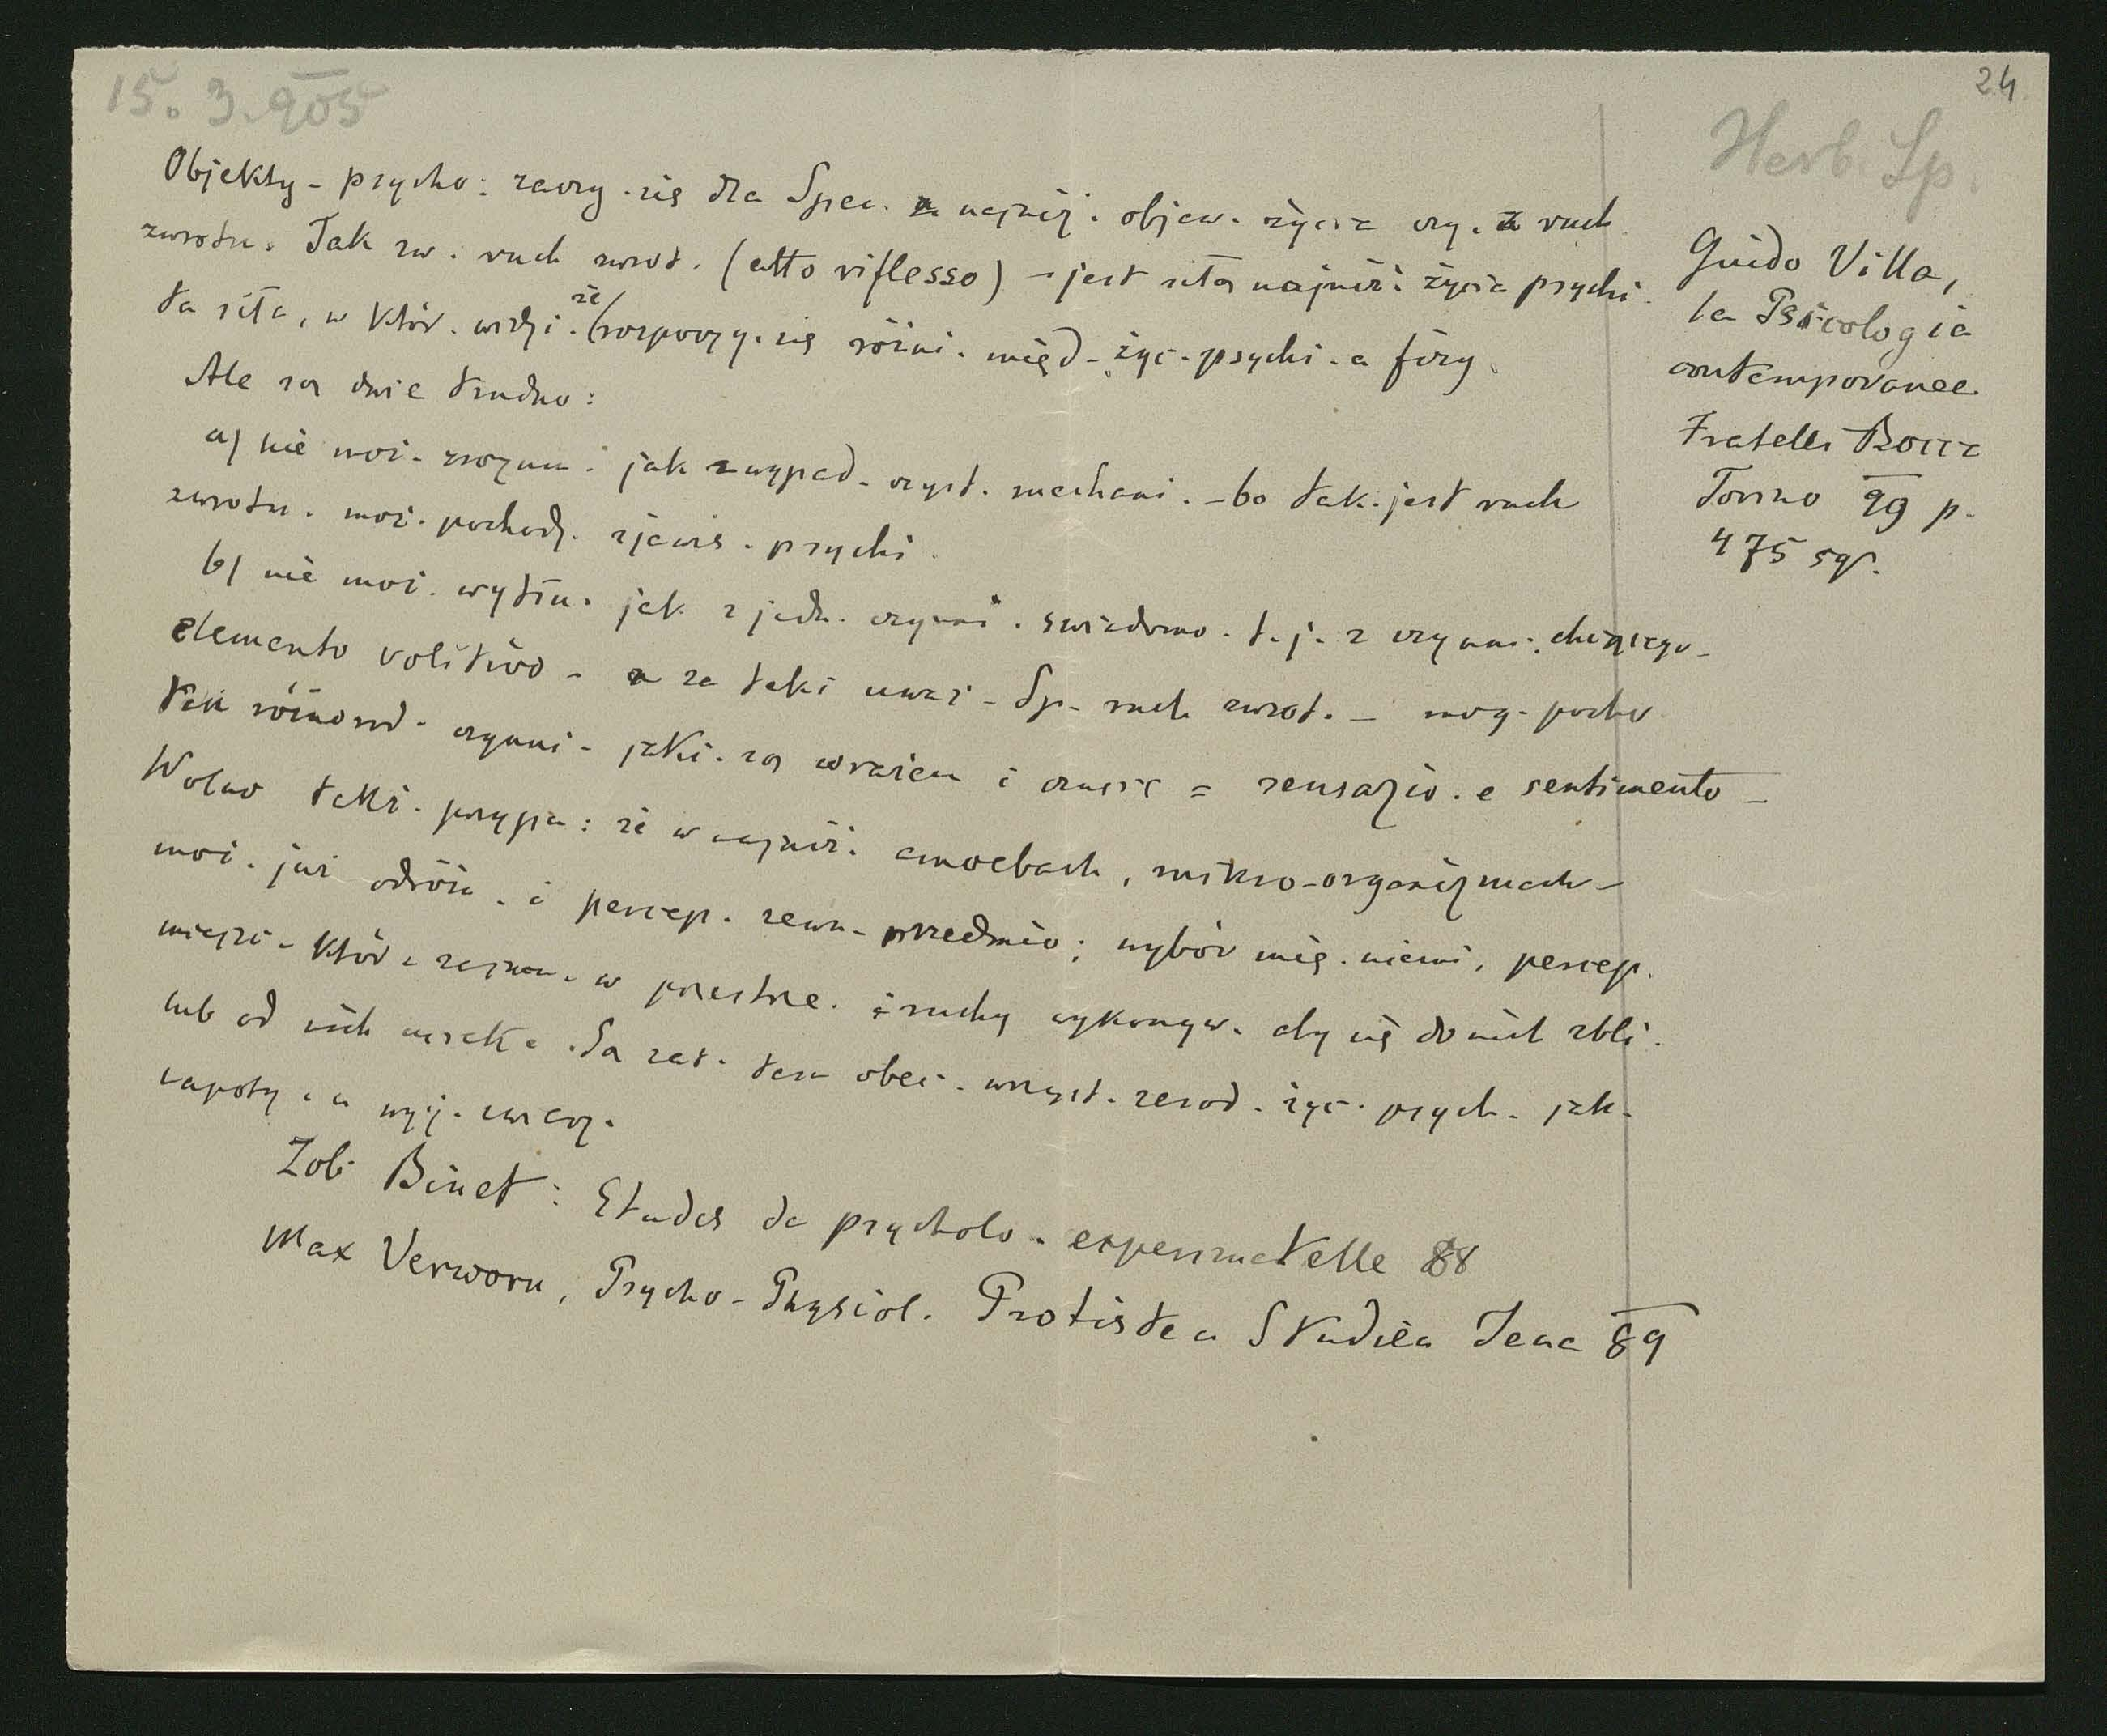 24
15. 3. 905
Herb. Sp.
Objekty - psycho: zaczy. się dla Spec. najniż. objaw. życia czy. ruch
zwrotn. Tak zw. ruch zwrot. (atto riflesso) - jest siłą najniż. życia psychi.
ta siła, w któr. widzi. że rozpoczy. się różni. międ - życ. psychi. a fizy.
Ale są dwie trudno:
a) nie moż. zrozum. jak z wypad. czyst. mechani. - bo tak. jest ruch
zwrotn. moż. pochodz. zjawis. psychi.
b) nie moż. wytłu. jak z jedn. czynni. świadomo. t. j. z czynni. chcącego -
elemento volitivo - a za taki uważ - Sp. ruch zwrot. - mog. pocho
tak różnorod. czynni - jaki. są wrażen i czucie = sensazio. e sentimento -
Wolno taki. przypu: że w najniż. amoebach, mikro-organizmach -
moż. już odróżn. i percep. zewn. przedmio; wybór mię. niemi, percep.
miejsc - któr. zajmu. w przestrze. i ruchy wykonyw. aby się do nich zbli.
lub od nich uciek. Są zat. tam obec. wszyst. zarod. życ. psych. jak.
napoty. u wyż. zwierz.
Zob. Binet: Etudes de psycholo. experimetelle 88
Max Verworn, Psycho-Physiol. Protisten Studien Jena 89
Guido Villa,
la Psicologia
contemporanea
Fratelli Bocca
Torino 99 p.
475 sq.